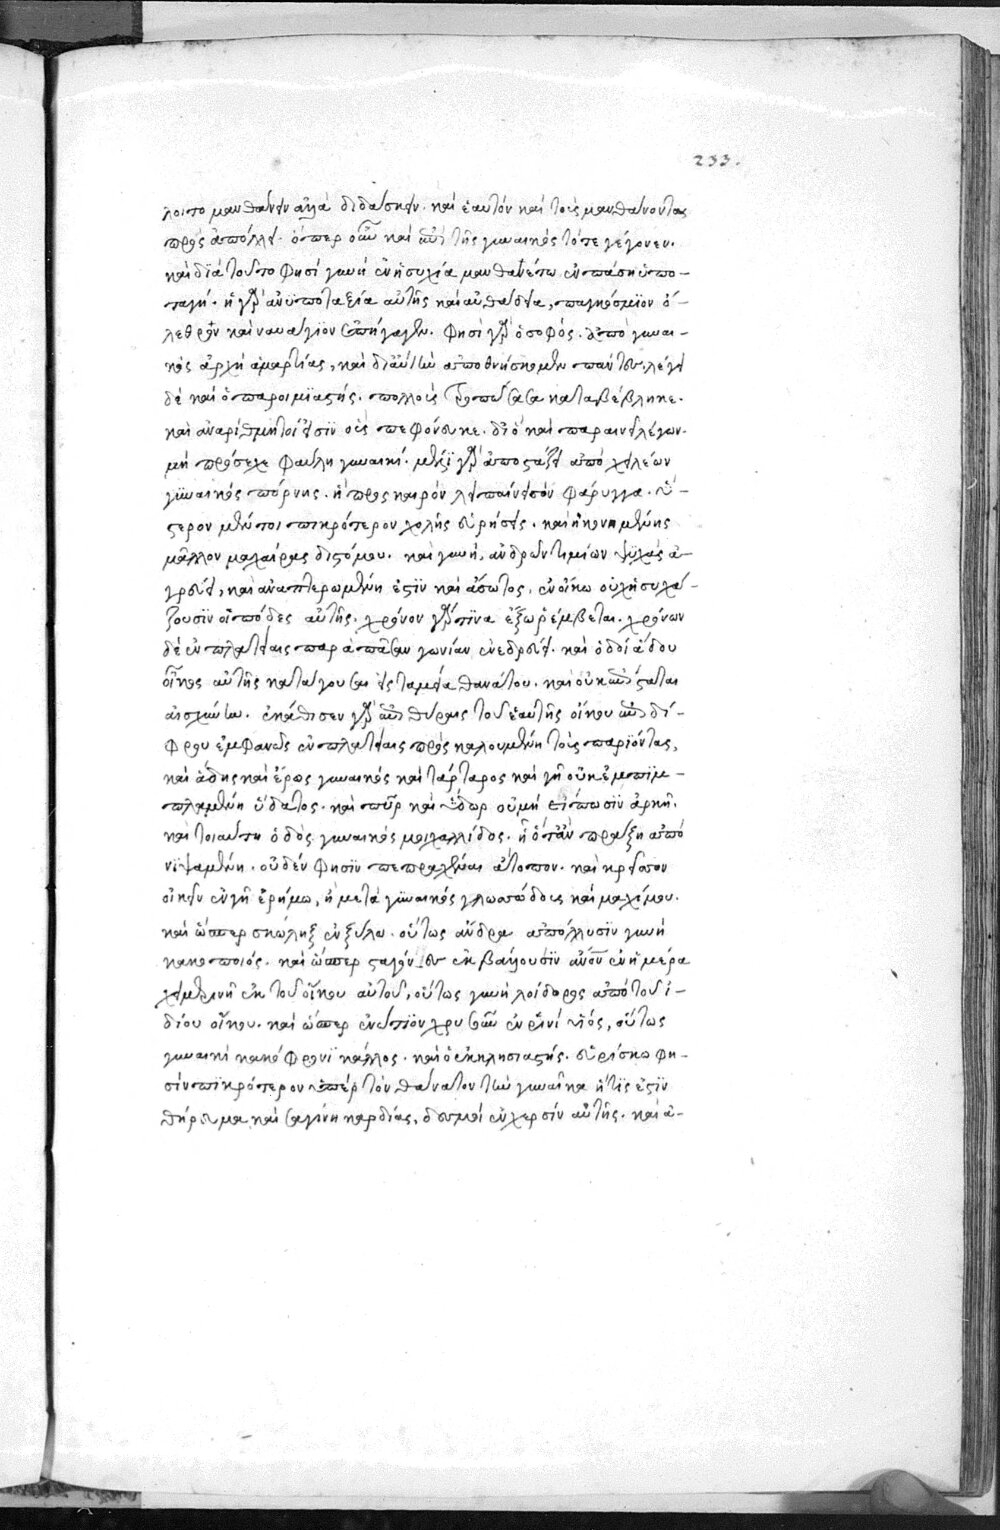 233.
λοιτο μανθάνειν ἀλλὰ διδάσκειν. καὶ ἑαυτὸν καὶ τοὺς μανθάνοντας
προσαπόλλει. ὅπερ οὖν καὶ ἐπὶ τῆς γυναικός τότε γέγονεν.
καὶ διατοῦτο φησί γυνή ἐν ἡσυχία μανθανέτω ἐν πάση ὑπο-
ταγή. ἡ γὰρ ἀνυποταξία αὐτῆς καὶ αὐθάδεια, παγκόσμιον ὄ-
λεθρον καὶ ναυάγιον ἐπήγαγεν. φησὶ γὰρ ὁ σοφός. ἀπὸ γυναι-
κός ἀρχή ἁμαρτίας, καὶ δι' αὐτὴν ἀποθνήσκομεν πάντες. λέγει
δέ καὶ ὁ παροιμιαστής. πολλοὺς τρώσασα καταβέβληκε.
καὶ ἀναρίθμητοί εἰσιν οὓς πεφόνευκε. διό καὶ παραινεῖ λέγων.
μή πρόσεχε φαύλη γυναικί. μέλι γὰρ ἀποστάζει ἀπό χειλέων
γυναικός πόρνης. ἡ προς καιρόν λιπαίνει σόν φάρυγγα. ὕ-
στερον μέντοι πικρότερον χολῆς εὑρήσεις. καὶ ἠκονημένης
μᾶλλον μαχαίρας διστόμου. καὶ γυνή, ἀνδρῶν τιμίων ψυχὰς ἀ-
γρεύει, καὶ ἀναπτερωμένη ἐστὶν καὶ ἄσωτος, ἐν οἴκω οὐχ ἡσυχά-
ζουσιν οἱ πόδες αὐτῆς. χρόνον γάρ τινα ἔξω ῥέμβεται. χρόνον
δέ ἐν πλατείαις παρὰ πᾶσαν γωνίαν ἐνεδρεύει. καὶ ὁδοί ἅδου
οἶκος αὐτῆς κατάγουσαι εἰς ταμεῖα θανάτου. καὶ οὐκ ἐπίσταται
αἰσχύνην. ἐκάθισεν γὰρ ἐπὶ θύραις τοῦ ἑαυτῆς οἴκου ἐπὶ δί-
φρου ἐμφανῶς ἐν πλατείαις προσκαλουμένη τοὺς παριόντας,
καὶ ἅδης καὶ ἔρως γυναικός καὶ τάρταρος καὶ γῆ οὐκ ἐμπιμ-
πλαμένη ὕδατος. καὶ πῦρ καὶ ὕδωρ οὐ μή εἴπωσιν ἀρκεῖ.
καὶ τοιαύτη ὁδὸς γυναικός μοιχαλλίδος. ἣ ὅταν πράξη ἀπο-
νιψαμένη. οὐδέν φησιν πεπραχέναι ἄτοπον. καὶ κρεῖττον
οἰκεῖν ἐν γῆ ἐρήμω, ἢ μετά γυναικός γλωσσώδους καὶ μαχίμου.
καὶ ὥσπερ σκώληξ ἐν ξύλω. οὕτως ἄνδρα ἀπόλλυσιν γυνή
κακοποιός. καὶ ὥσπερ σταγόνες ἐκβάλλουσιν ἄνθρωπον ἐν ἡμέρα
χειμερινῆ ἐκ τοῦ οἴκου αὐτοῦ, οὕτως γυνή λοίδορος ἀπό τοῦ ἰ-
δίου οἴκου. καὶ ὥσπερ ἐνώτιον χρυσοῦν ἐν ῥινί ὑός, οὕτως
γυναικί κακόφρονι κάλλος. καὶ ὁ ἐκκλησιαστής. εὑρίσκω φη-
σίν πικρότερον ὑπέρ τὸν θάνατον τὴν γυναῖκα ἥτις ἐστὶν
θήρευμα καὶ σαγήνη καρδίας, δεσμοί ἐν χερσίν αὐτῆς. καὶ ἀ-